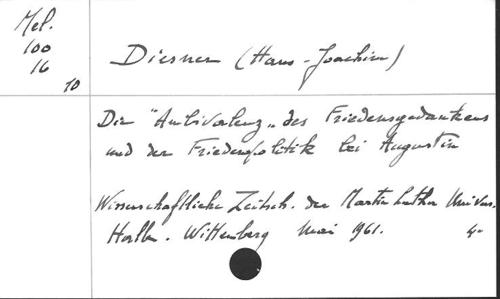 Mel.
100
16
10
Diesner (Hans-Joachim)
Die "Ambivalenz" des Friedensgedankens
und der Friedenspolitik bei Augustin
Wissenschaftliche Zeitsch. der Martin Luther Univers.
Halle. Wittenberg Mai 1961. 4°